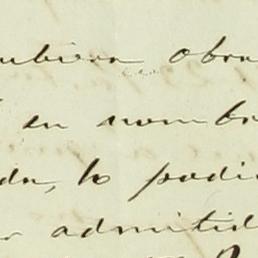 ubiera obra
en nombr
da, lo podi
admitid